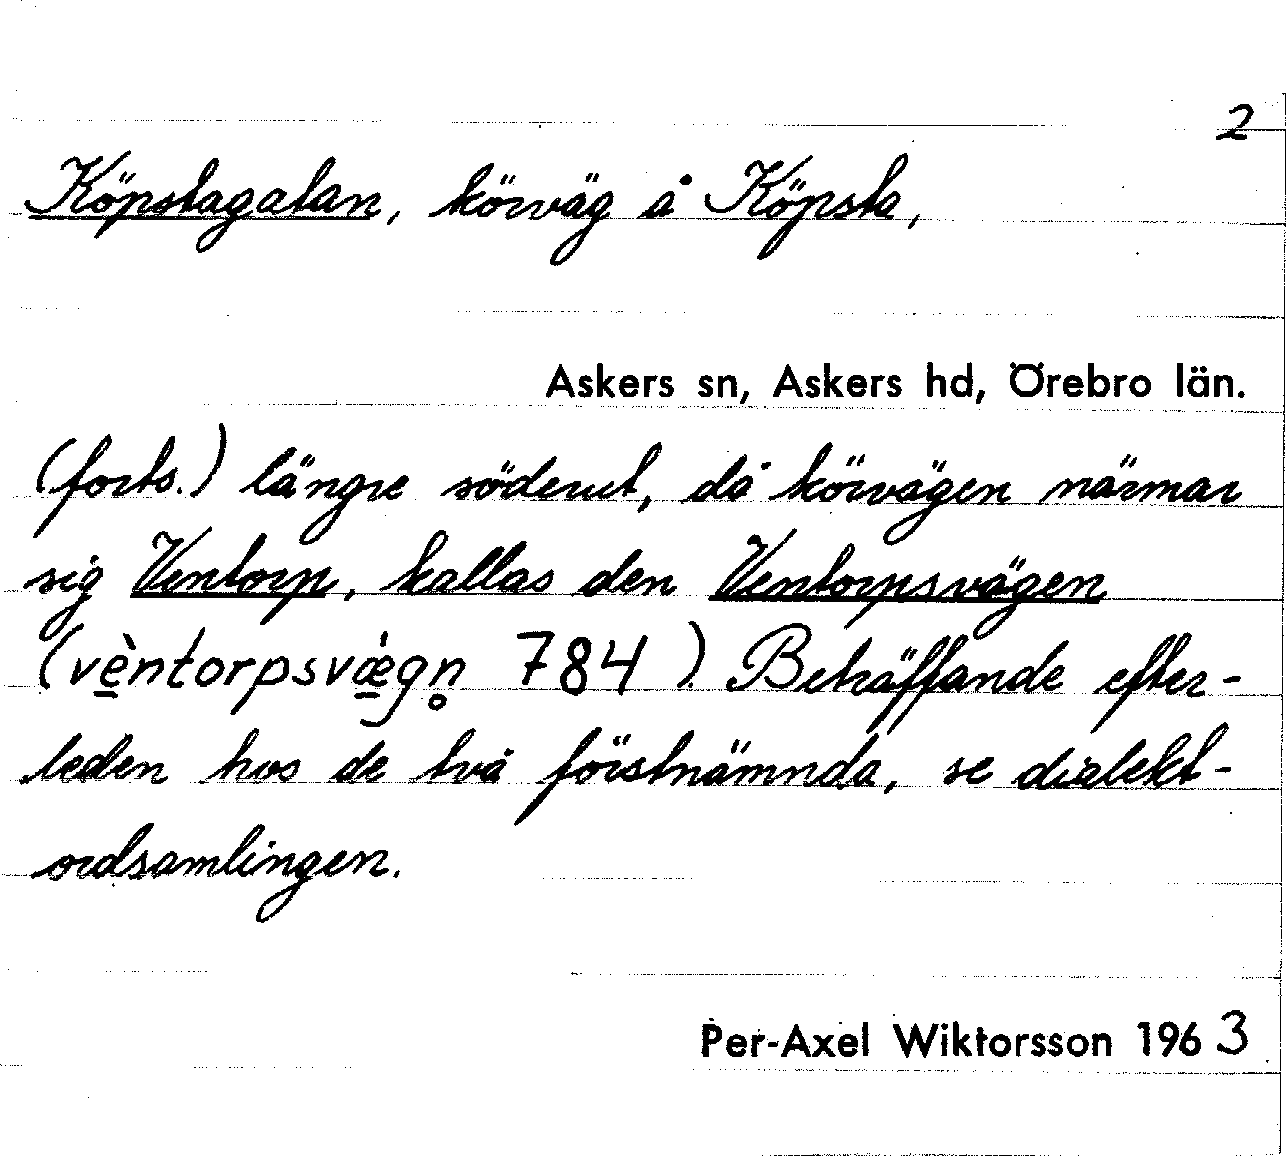 2
Köpstagatan, körväg å Köpsta,
Askers sn, Askers hd, Örebro län.
(forts.) längre söderut, då körvägen närmar
sig Ventorp, kallas den Ventorpsvägen
(vèntorpsvæ̀gn̥ 784). Beträffande efter-
leden hos de två förstnämnda, se dialekt-
ordsamlingen.
Per-Axel Wiktorsson 1963